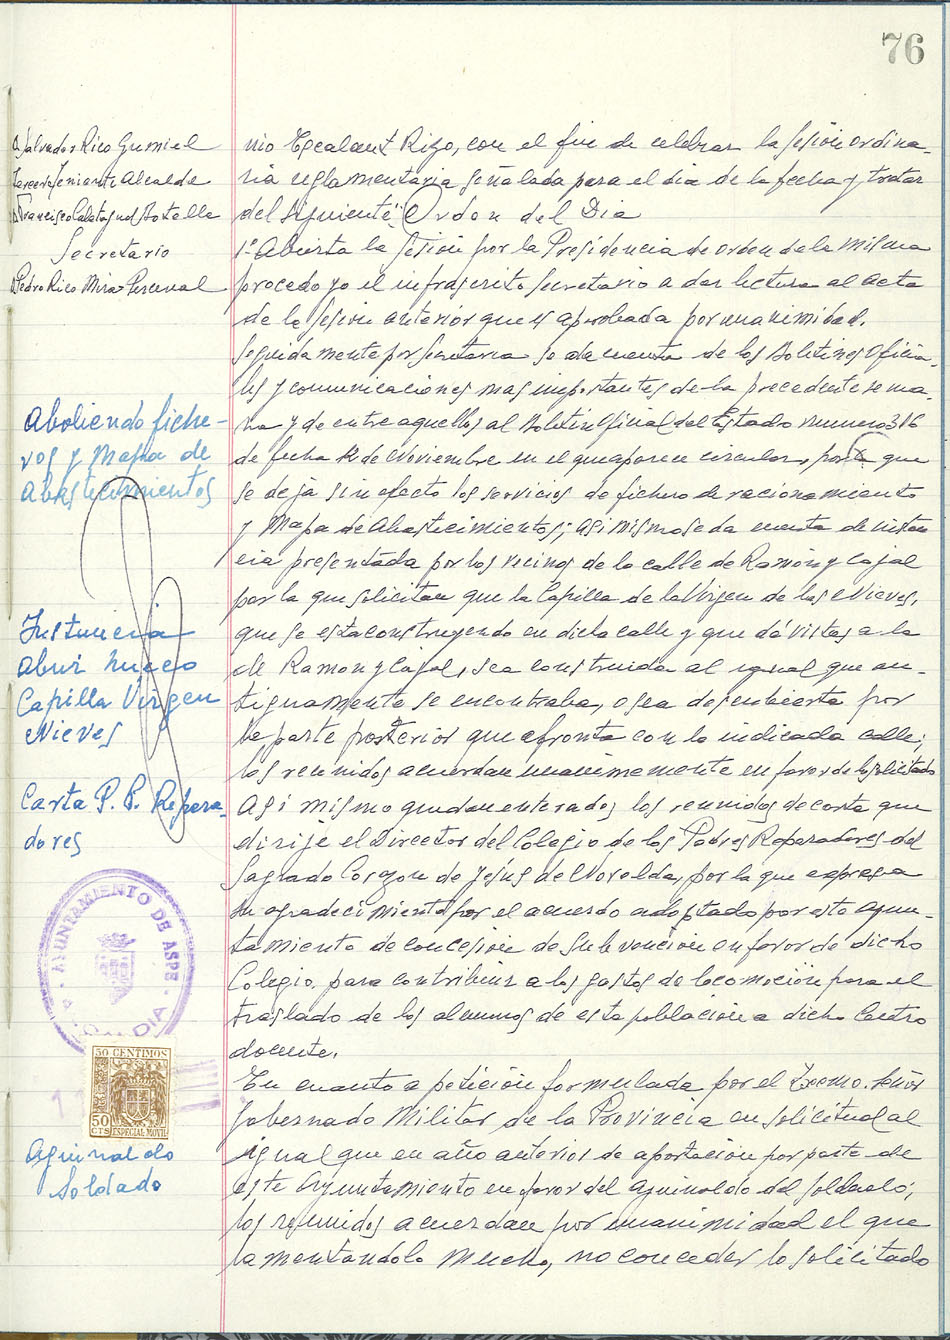 76
D Salvador Rico Gumiel
Tercer Teniente Alcalde
D Francisco Calatayud Botella
Secretario
D Pedro Rico Mira-Perceval
nio Escalant Rizo, con el fin de celebrar la sesión ordina-
ria reglamentaria señalada para el dia de la fecha y tratar
del siguiente: Orden del Dia
1º Abierta la sesión por la Presidencia de orden de la misma
procedo yo el infrascrito Secretario a dar lectura al acta
de la sesión anterior que es aprobada por unanimidad.
Seguidamente por Secretaria se da cuenta de los Boletines Oficia-
les y comunicaciones mas importantes de la precedente sema-
na y de entre aquellos al Boletin Oficial del Estado numero 316
de fecha 12 de Noviembre en el que aparece circular, por la que
se deja sin efecto los servicios de fichero de racionamiento
y Mapa de Abastecimientos; asi mismo se da cuenta de instan
cia presentada por los vecinos de la calle de Ramon y Cajal
por la que solicitan que la Capilla de la Virgen de las Nieves,
que se esta construyendo en dicha calle y que dá vistas a la
de Ramon y Cajal, sea construida al igual que an-
tiguamente se encontraba, o sea descubierta por
la parte posterior que afronta con la indicada calle;
los reunidos acuerdan unanimemente en favor de lo solicitado
Asi mismo quedan enterados los reunidos de carta que
dirije el Director del Colegio de los Padres Reparadores del
Sagrado Corazon de Jesús de Novelda, por la que expresa
su agradecimiento por el acuerdo adoptado por este Ayun-
tamiento de concesión de subvención en favor de dicho
Colegio para contribuir a los gastos de locomoción para el
traslado de los alumnos de esta población a dicho Centro
docente.
En cuanto a petición formulada por el Excmo. Señor
Gobernado Militar de la Provincia en solicitud al
igual que en año anterior de aportación por parte de
este Ayuntamiento en favor del aguinaldo del soldado;
los reunidos acuerdan por unanimidad el que
lamentandolo mucho, no conceder lo solicitado
Aboliendo fiche-
ros y Mapa de
Abastecimientos
Instancia
abrir hueco
Capilla Virgen
Nieves
Carta P. P. Repara-
dores
AYUNTAMIENTO DE ASPE
50 CENTIMOS
50
CTS ESPECIAL MOVIL
Aguinaldo
Soldado